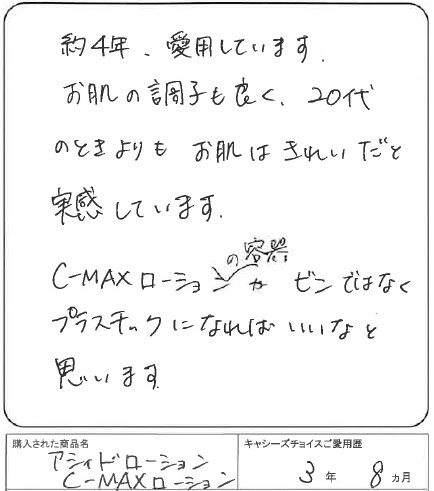 約4年、愛用しています.
お肌の調子も良く、20代
のときよりも お肌は きれいだと
実感しています.
の容器
C-MAXローションが ビンではなく
プラスチックになればいいなと
思います
購入された商品名
キャシーズチョイスご愛用歴
アシィドローション
C-MAXローション
3年 8ヵ月